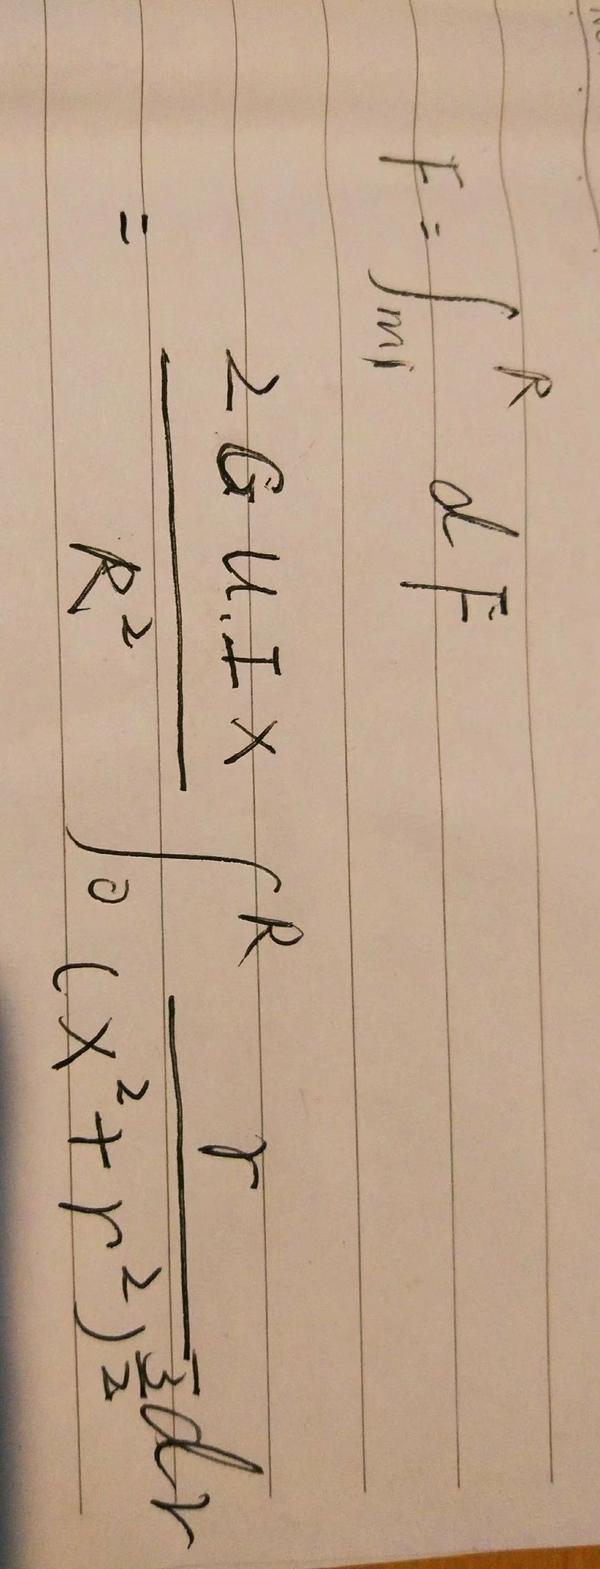 F = ∫_{m1}^{R} dF
= \frac{2 G u . I x}{R^2} ∫_{0}^{R} \frac{r}{(x^2 + r^2)^{\frac{3}{2}}} dr